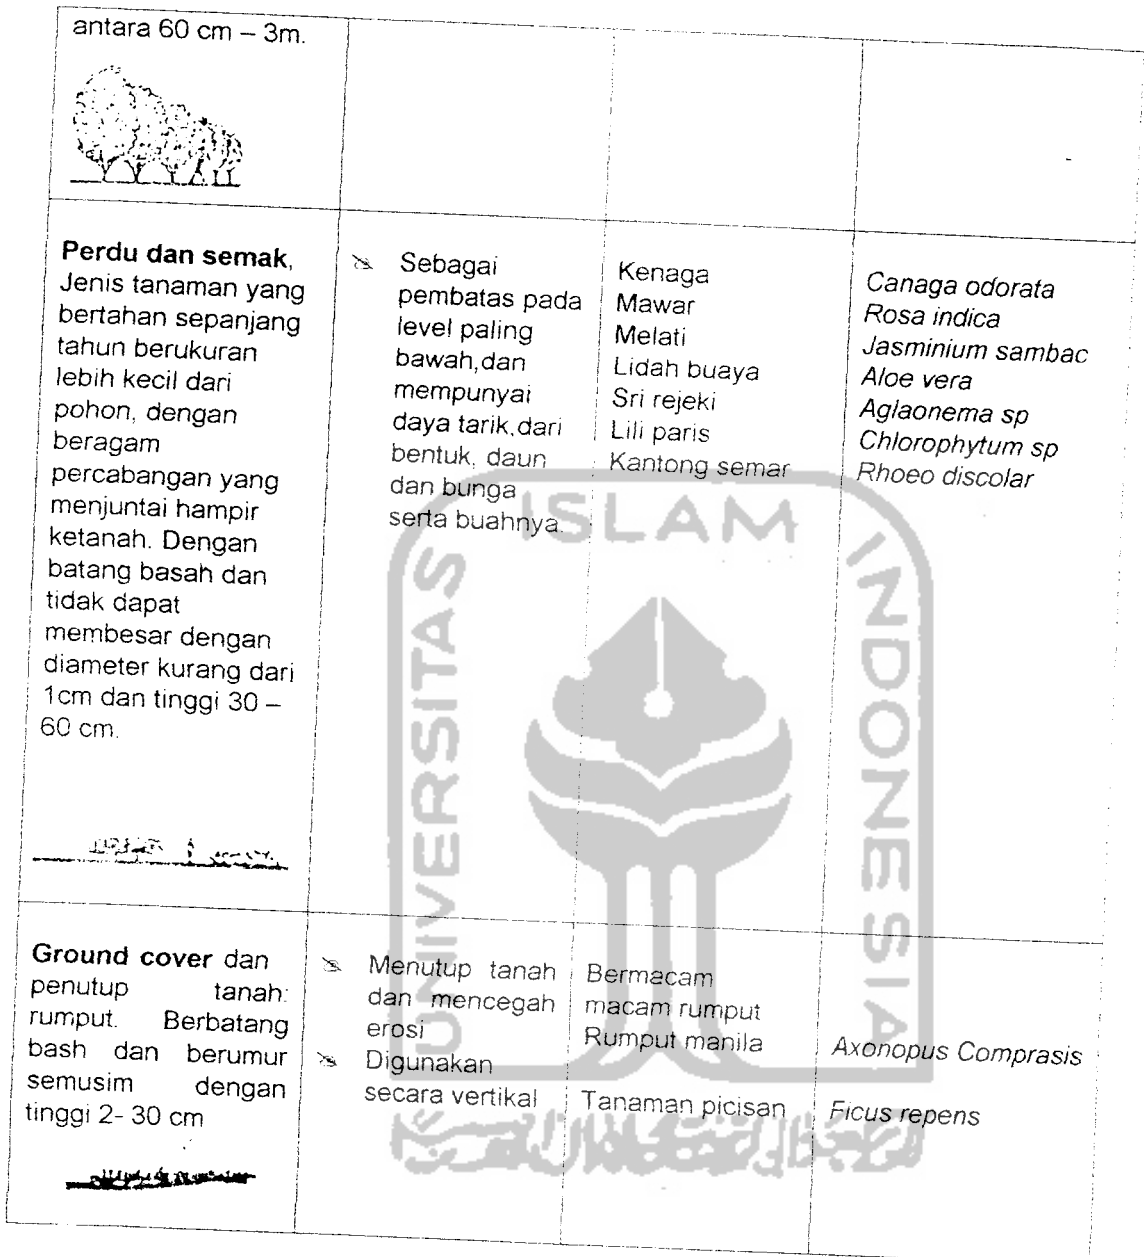 antara 60 cm – 3m.
Perdu dan semak,
Jenis tanaman yang
bertahan sepanjang
tahun berukuran
lebih kecil dari
pohon, dengan
beragam
percabangan yang
menjuntai hampir
ketanah. Dengan
batang basah dan
tidak dapat
membesar dengan
diameter kurang dari
1cm dan tinggi 30 –
60 cm.
Sebagai
pembatas pada
level paling
bawah,dan
mempunyai
daya tarik,dari
bentuk, daun
dan bunga
serta buahnya.
Kenaga
Mawar
Melati
Lidah buaya
Sri rejeki
Lili paris
Kantong semar
Canaga odorata
Rosa indica
Jasminium sambac
Aloe vera
Aglaonema sp
Chlorophytum sp
Rhoeo discolar
Ground cover dan
penutup tanah:
rumput. Berbatang
bash dan berumur
semusim dengan
tinggi 2- 30 cm
Menutup tanah
dan mencegah
erosi
Digunakan
secara vertikal
Bermacam
macam rumput
Rumput manila
Tanaman picisan
Axonopus Comprasis
Ficus repens
UNIVERSITAS
ISLAM
INDONESIA